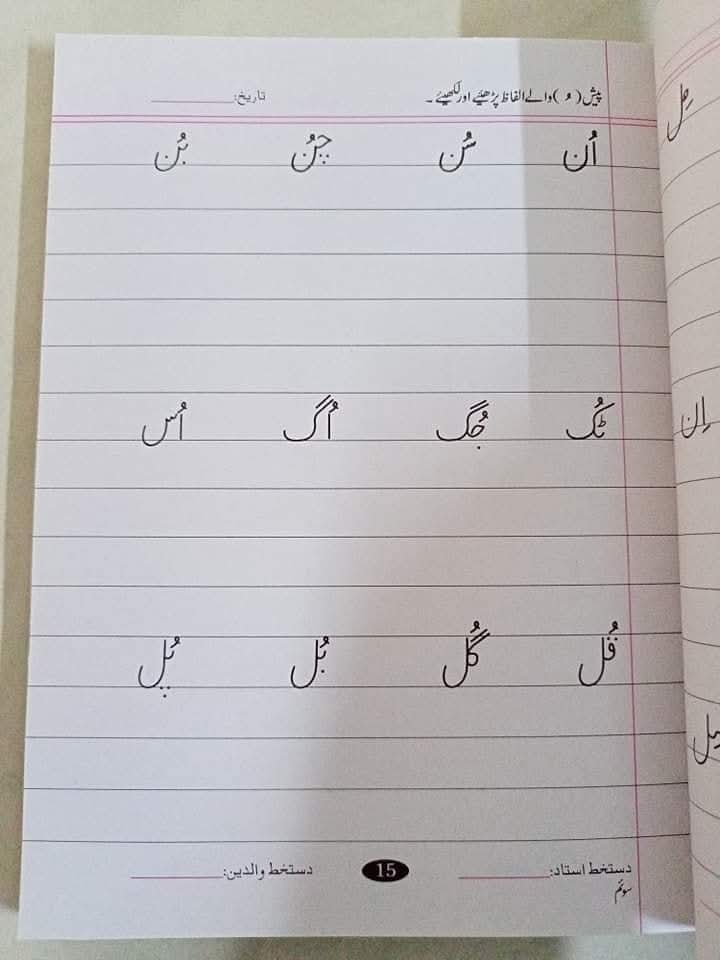 پیش ( ُ ) والے الفاظ پڑھیئے اور لکھیئے ۔ تاریخ:
اُن سُن چُن بُن
ٹُک جُگ اُگ اُس
قُل گُل بُل پُل
دستخط استاد: 15 دستخط والدین:
سوئم
اِن